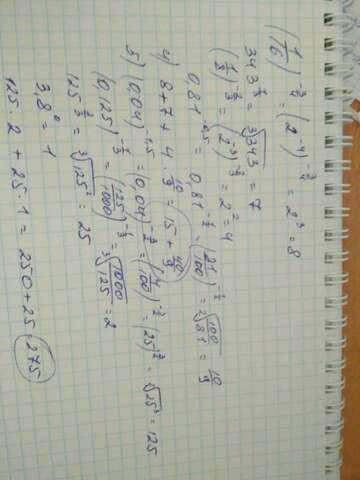 (1/16)^(-3/4) = (2^(-4))^(-3/4) = 2^3 = 8
343^(1/3) = ∛343 = 7
(1/8)^(-2/3) = (2^(-3))^(-2/3) = 2^2 = 4
0,81^(-0,5) = 0,81^(-1/2) = (81/100)^(-1/2) = ²√(100/81) = 10/9
4) 8 + 7 + 4 · 10/9 = 15 + 40/9
5) (0,04)^(-1,5) = (0,04)^(-3/2) = (4/100)^(-3/2) = (25)^(3/2) = √25³ = 125
(0,125)^(-1/3) = (125/1000)^(-1/3) = ∛(1000/125) = 2
125^(2/3) = ∛125² = 25
3,8^0 = 1
125 · 2 + 25 · 1 = 250 + 25 = 275